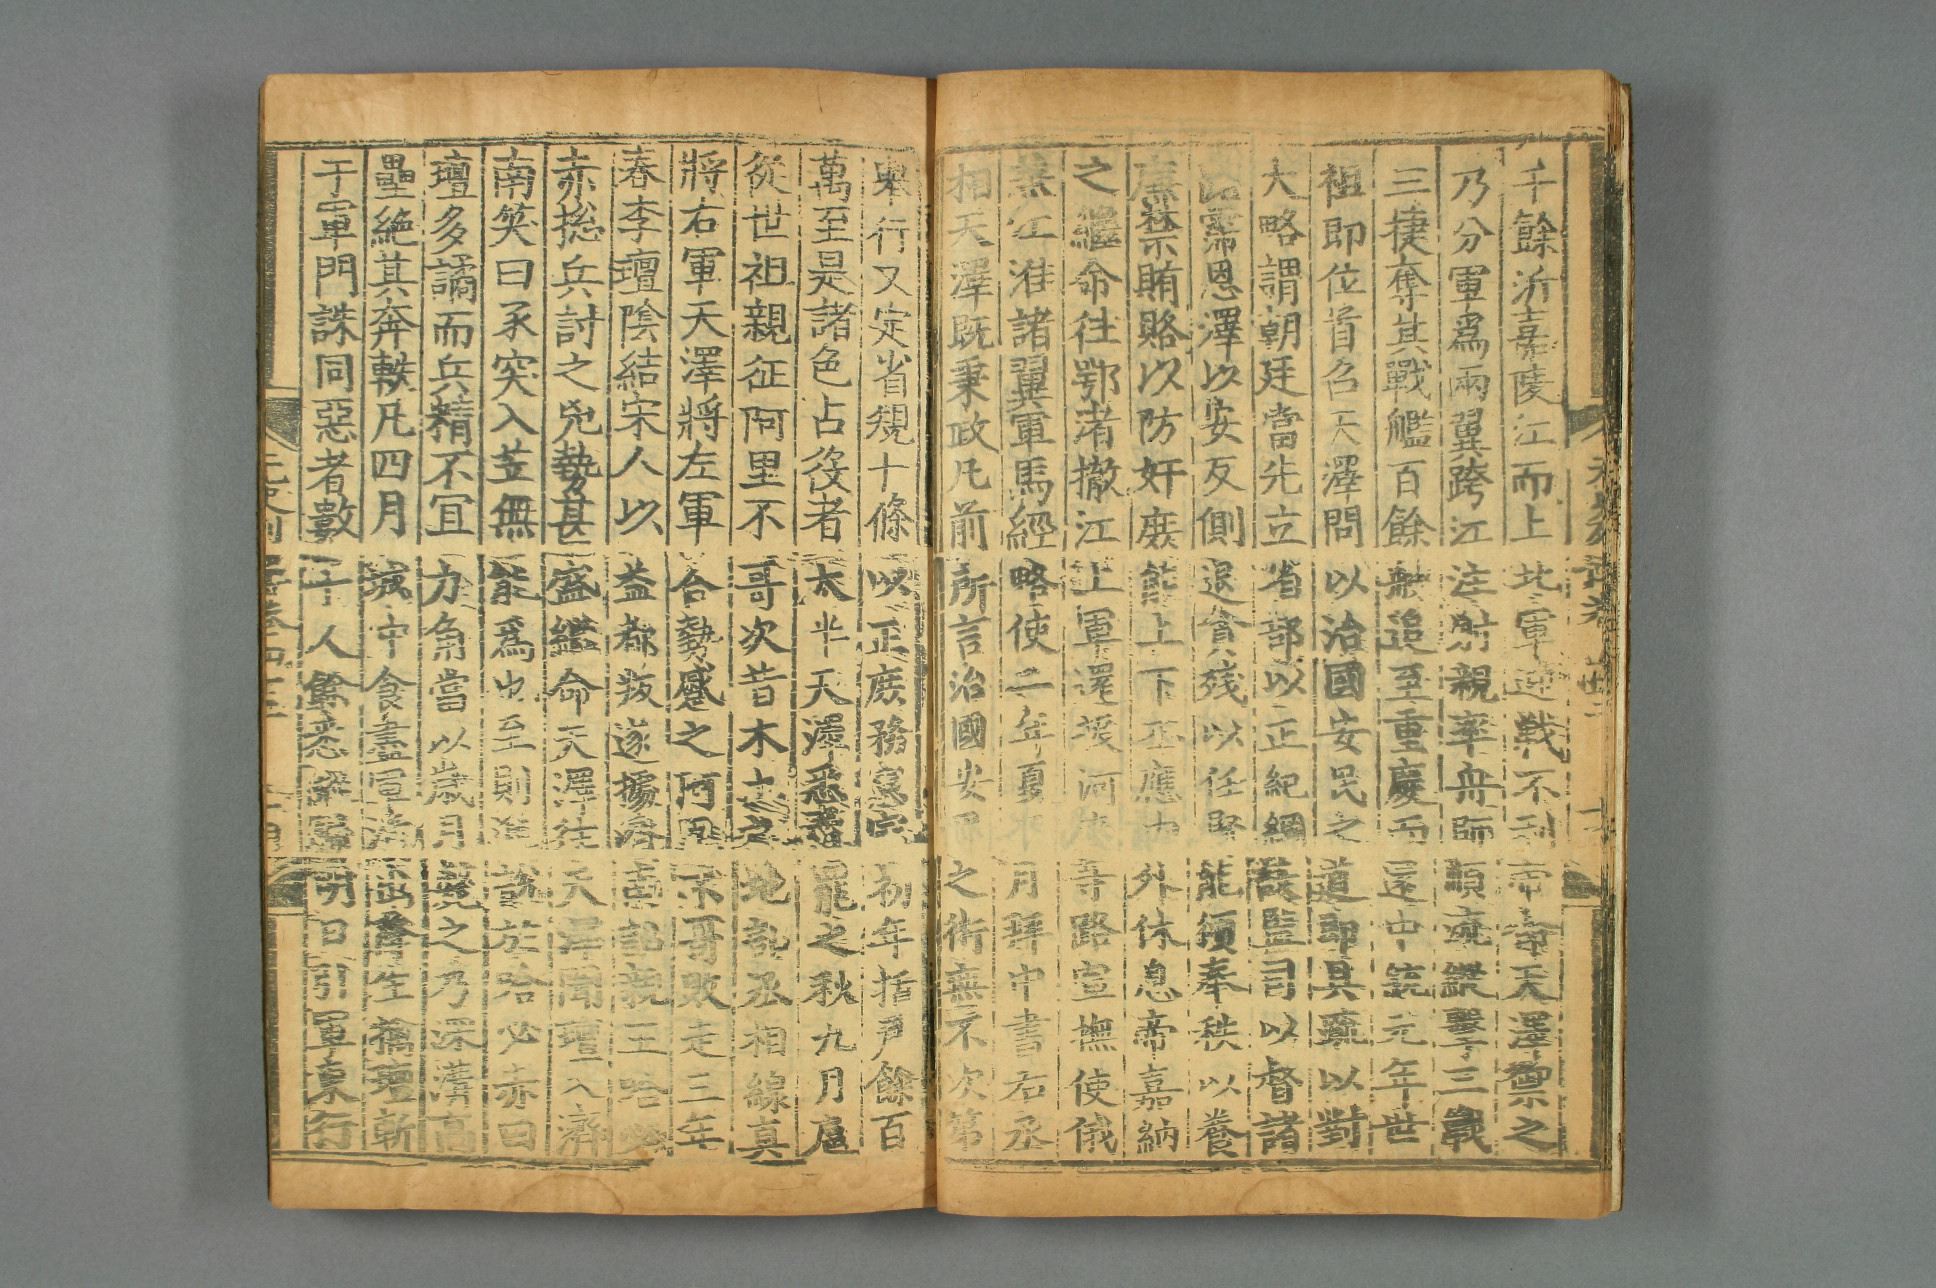 千餘泝嘉陵江而上北軍迎戰不利帝命天澤禦之
乃分軍爲兩翼跨江注射親率舟師順流縱擊三戰
三捷奪其戰艦百餘艘追至重慶而還中統元年世
祖即位首召天澤問以治國安民之道即具疏以對
大略謂朝廷當先立省部以正紀綱設監司以督諸
路霈恩澤以安反側退貪殘以任賢能頒奉秩以養
廉禁賄賂以防奸庶能上下丕應内外休息帝嘉納
之繼命往鄂渚撤江上軍還授河南等路宣撫使俄
兼江淮諸翼軍馬經略使二年夏五月拜中書右丞
相天澤既秉政凡前所言治國安民之術無不次第
舉行又定省規十條以正庶務憲宗初年括戶餘百
萬至是諸色占役者太半天澤悉奏罷之秋九月扈
從世祖親征阿里不哥次昔木土之地詔丞相線真
將右軍天澤將左軍合勢蹙之阿里不哥敗走三年
春李璮陰結宋人以益都叛遂據濟南詔親王哈必
赤揔兵討之兇勢甚盛繼命天澤往天澤聞璮入濟
南笑曰豕突入苙無能爲也至則進說於哈必赤曰
璮多譎而兵精不宜力角當以歲月斃之乃深溝高
壘絶其奔軼凡四月城中食盡軍潰出降生擒璮斬
于軍門誅同惡者數十人餘悉縱歸明日引軍東行